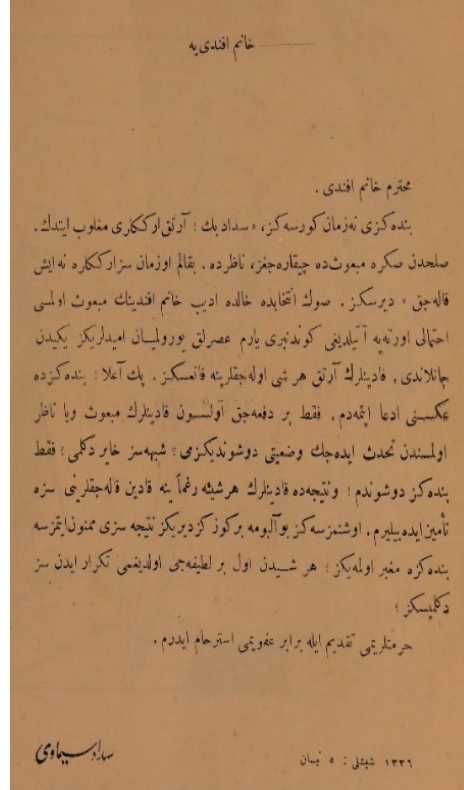 ............ خانم افندی‌یه
محترم خانم افندی .
بنده‌كزی نه‌زمان كورسه‌كز، « سداد بك ؛ آرتق ارككلری مغلوب ایتدك .
صلحدن صكره مبعوث‌ده چیقاره‌جغز، ناظرده . بقالم اوزمان سز ارككلره نه ایش
قاله‌جق » دیرسكز . صوك انتخابده خالده ادیب خانم افندینك مبعوث اولمسی
احتمالی اورته‌یه آتیلدیغی كوندنبری یارم عصرلق یورولمیان امیدلریكز یكیدن
جانلاندی . قادینلرك آرتق هر شی اوله‌جقلرینه قانعسكز . پك آعلا ؛ بنده‌كزده
عكسنی ادعا ایتمه‌دم . فقط بر دفعه‌جق آولسون قادینلرك مبعوث ویا ناظر
اولمسندن تحدث ایده‌جك وضعیتی دوشوندیكزمی ؛ شبهه‌سز خایر دكلمی ؛ فقط
بنده‌كز دوشوندم ؛ ونتیجه‌ده قادینلرك هرشیئه رغماً ینه قادین قاله‌جقلرینی سزه
تأمین ایده‌بیلیرم . اوشنمزسه‌كز بو آلبومه بر كوز كزدیریكز نتیجه سزی ممنون ایتمزسه
بنده‌كزه مغبر اولمه‌یكز ؛ هر شیدن اول بر لطیفه‌جی اولدیغمی تكرار ایدن سز
دكلمیسكز ؛
حرمتلریمی تقدیم ایله برابر عفویمی استرحام ایدرم .
١٣٣٦ شیشلی : ٥ نیسان
سداد سیماوی